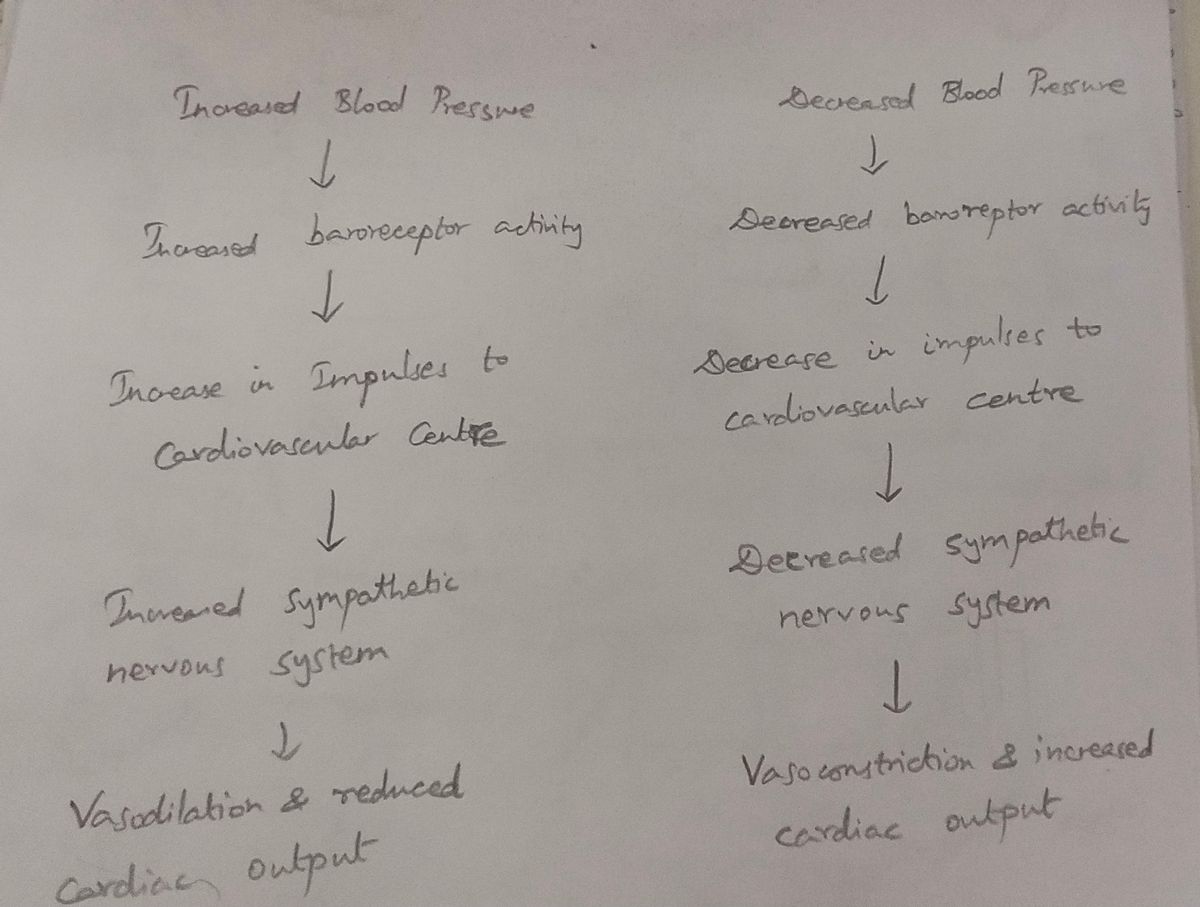 Increased Blood Pressure
↓
Increased baroreceptor activity
↓
Increase in Impulses to
Cardiovascular Centre
↓
Increased sympathetic
nervous system
↓
Vasodilation & reduced
Cardiac output
Decreased Blood Pressure
↓
Decreased baroreptor activity
↓
Decrease in impulses to
cardiovascular centre
↓
Decreased sympathetic
nervous system
↓
Vasoconstriction & increased
cardiac output